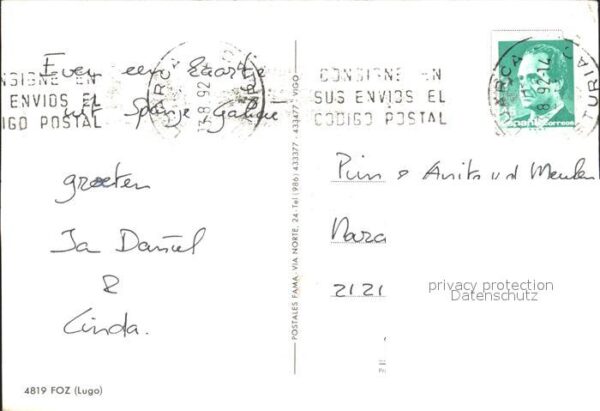 Even een kaartje
uit Spanje Galicië
groeten
Ja Daniel
&
Linda.
4819 FOZ (Lugo)
POSTALES FAMA. VIA NORTE, 24-Tel (986) 433377 - 433477 - VIGO
CONSIGNE EN
SUS ENVIOS EL
CODIGO POSTAL
NSIGNE EN
ENVIOS EL
IGO POSTAL
LUARCA
8 92-14
correos
Pim & Anita v.d Meulen
Nara
2121
privacy protection
Datenschutz